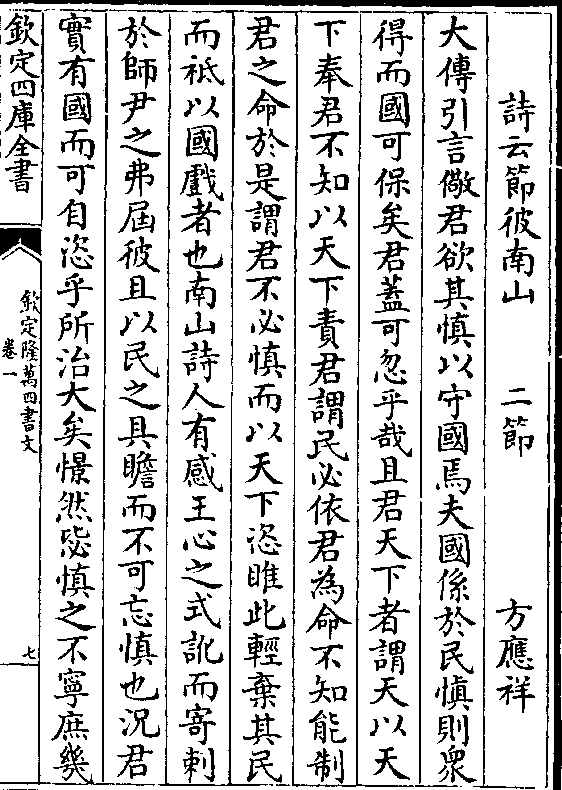 詩云節彼南山　二節　方應祥
大傳引言儆君欲其慎以守國焉夫國係於民慎則衆
得而國可保矣君蓋可忽乎哉且君天下者謂天以天
下奉君不知以天下責君謂民必依君為命不知能制
君之命於是謂君不必慎而以天下恣睢此輕棄其民
而祗以國戲者也南山詩人有感王心之式訛而寄刺
於師尹之弗屆彼且以民之具瞻而不可忘慎也況君
實有國而可自恣乎所治大矣憬然毖慎之不寧庶幾
欽定四庫全書
欽定隆萬四書文
卷一
七